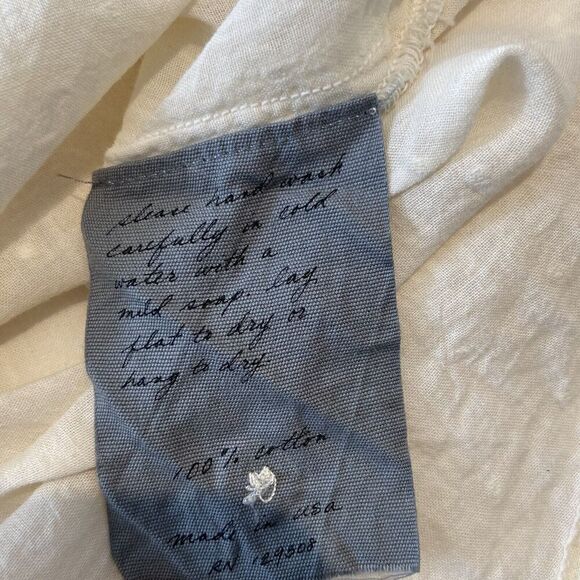 please hand wash
carefully in cold
water with a
mild soap. lay
flat to dry or
hang to dry
100% cotton
made in usa
RN 129508